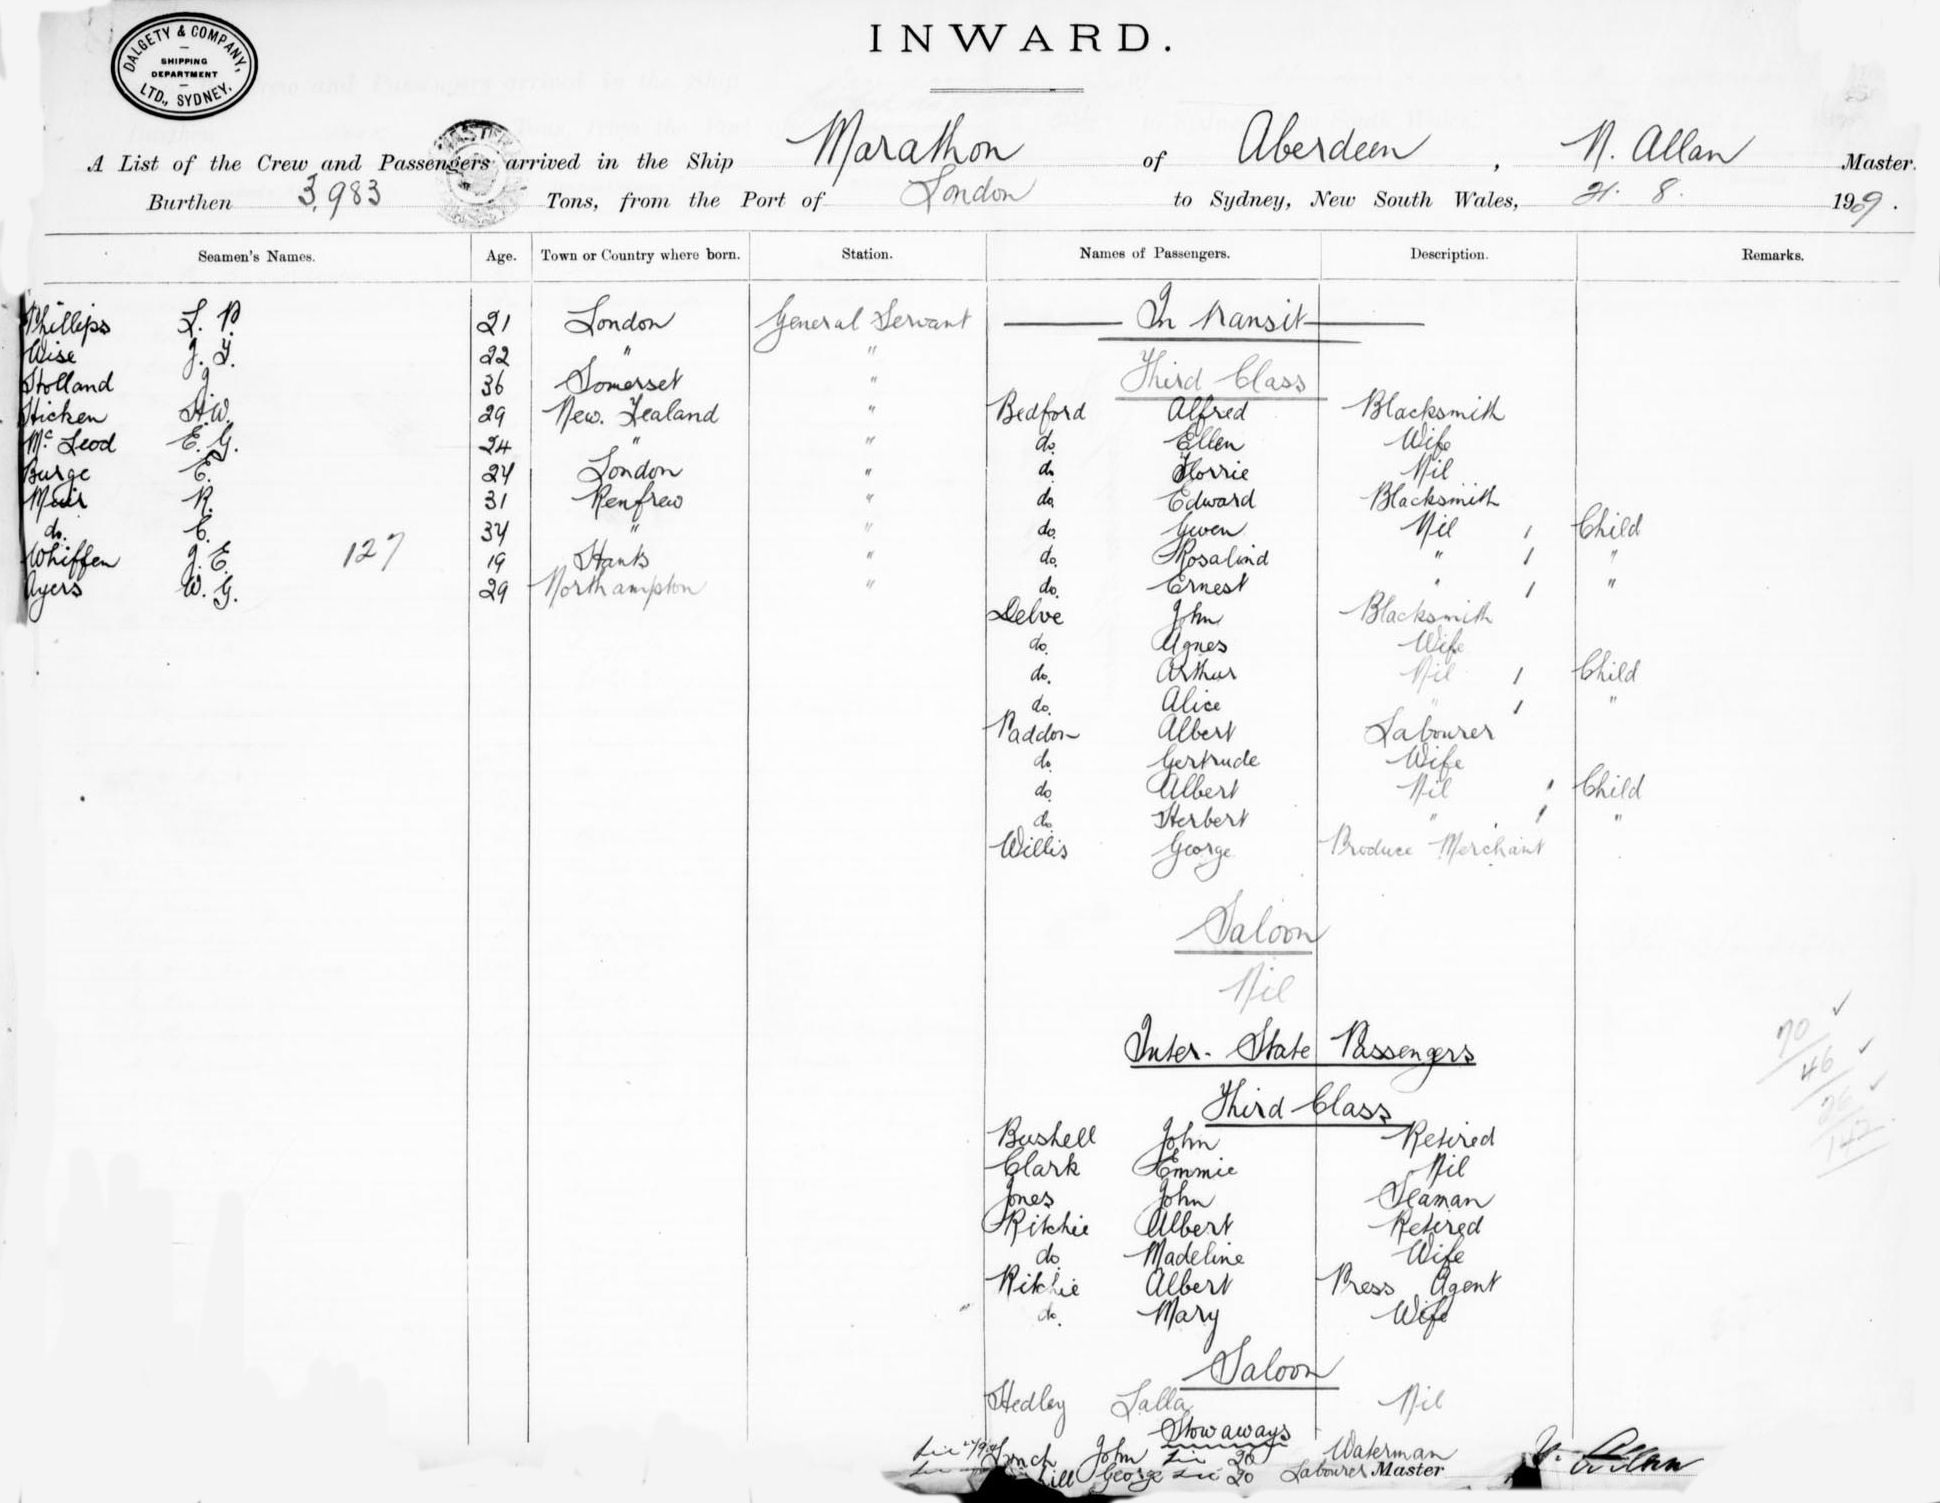 DALGETY & COMPANY,
SHIPPING
DEPARTMENT
LTD., SYDNEY.
INWARD.
A List of the Crew and Passengers arrived in the Ship Marathon of Aberdeen, N. Allan Master.
Burthen 3,983 Tons, from the Port of London to Sydney, New South Wales, 21. 8. 1909.
Seamen's Names. Age. Town or Country where born. Station. Names of Passengers. Description. Remarks.
Phillips L. P 21 London General Servant In transit
Wise J. Y. 22 " "
Third Class
Stolland J 36 Somerset "
Hicken H.W. 29 New. Zealand " Bedford Alfred Blacksmith
Mc Leod E. G. 24 " " do. Ellen Wife
Burge E. 24 London " do Florrie Nil
Muir R. 31 Renfrew " do. Edward Blacksmith
do. C. 34 " " do. Gwen Nil 1 Child
Whiffen J. E. 127 19 Hants " do. Rosalind " 1 "
Ayers W. G. 29 Northampton " do. Ernest " 1 "
Delve John Blacksmith
do. Agnes Wife
do. Arthur Nil 1 Child
do. Alice " 1 "
Paddon Albert Labourer
do. Gertrude Wife
do. Albert Nil 1 Child
do. Herbert " 1 "
Willis George Produce Merchant
Saloon
Nil
Inter-State Passengers
70
46
26
142
Third Class
Bushell John Retired
Clark Emmie Nil
Jones John Seaman
Ritchie Albert Retired
do Madeline Wife
Ritchie Albert Press Agent
do. Mary Wife
Saloon
Hedley Lalla Nil
Stowaways
Lynch John 20 Waterman
George 20 Labourer Master Allan